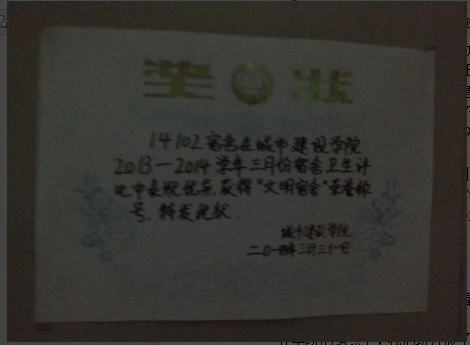 奖状
14102宿舍在城市建设学院
2013—2014学年三月份宿舍卫生评
比中表现优异,获得“文明宿舍”荣誉称
号,特发此状.
城市建设学院
二〇一四年三月三十一日